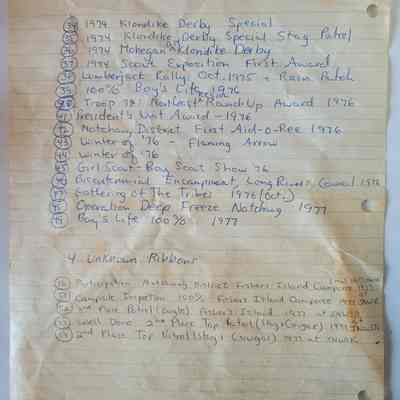 1974 Klondike Derby Special
35 1974 Klondike Derby Special Stag Patrol
36 1974 Mohegan Klondike Derby
37 1974 Scout Exposition First Award
Lumberjack Rally Oct. 1975 + Rain Patch
39 100% Boy's Life 1976
Troop 181 Northeast Region Round Up Award 1976
41 President's Unit Award - 1976
42 Natchaug District First Aid-O-Ree 1976
43 Winter of '76 - Flaming Arrow
44 Winter of '76
45 Girl Scout - Boy Scout Show '76
46 Bicentennial Encampment, Long Rivers Council 1976
47 Gathering of The Tribes 1976 (Oct.)
48 Operation Deep Freeze Natchaug 1977
49 Boy's Life 100% 1977
4 Unknown Ribbons
Participation Natchaug District Fishers Island Camporee 1977
Campsite Inspection 100% Fishers Island Camporee 1977
2nd Place Patrol (Eagle) Fishers Island 1977 at
Well Done 2nd Place Top Patrol (Stag + Cougar) 1977
2nd Place Top Patrol (Stag + Cougar) 1977 at